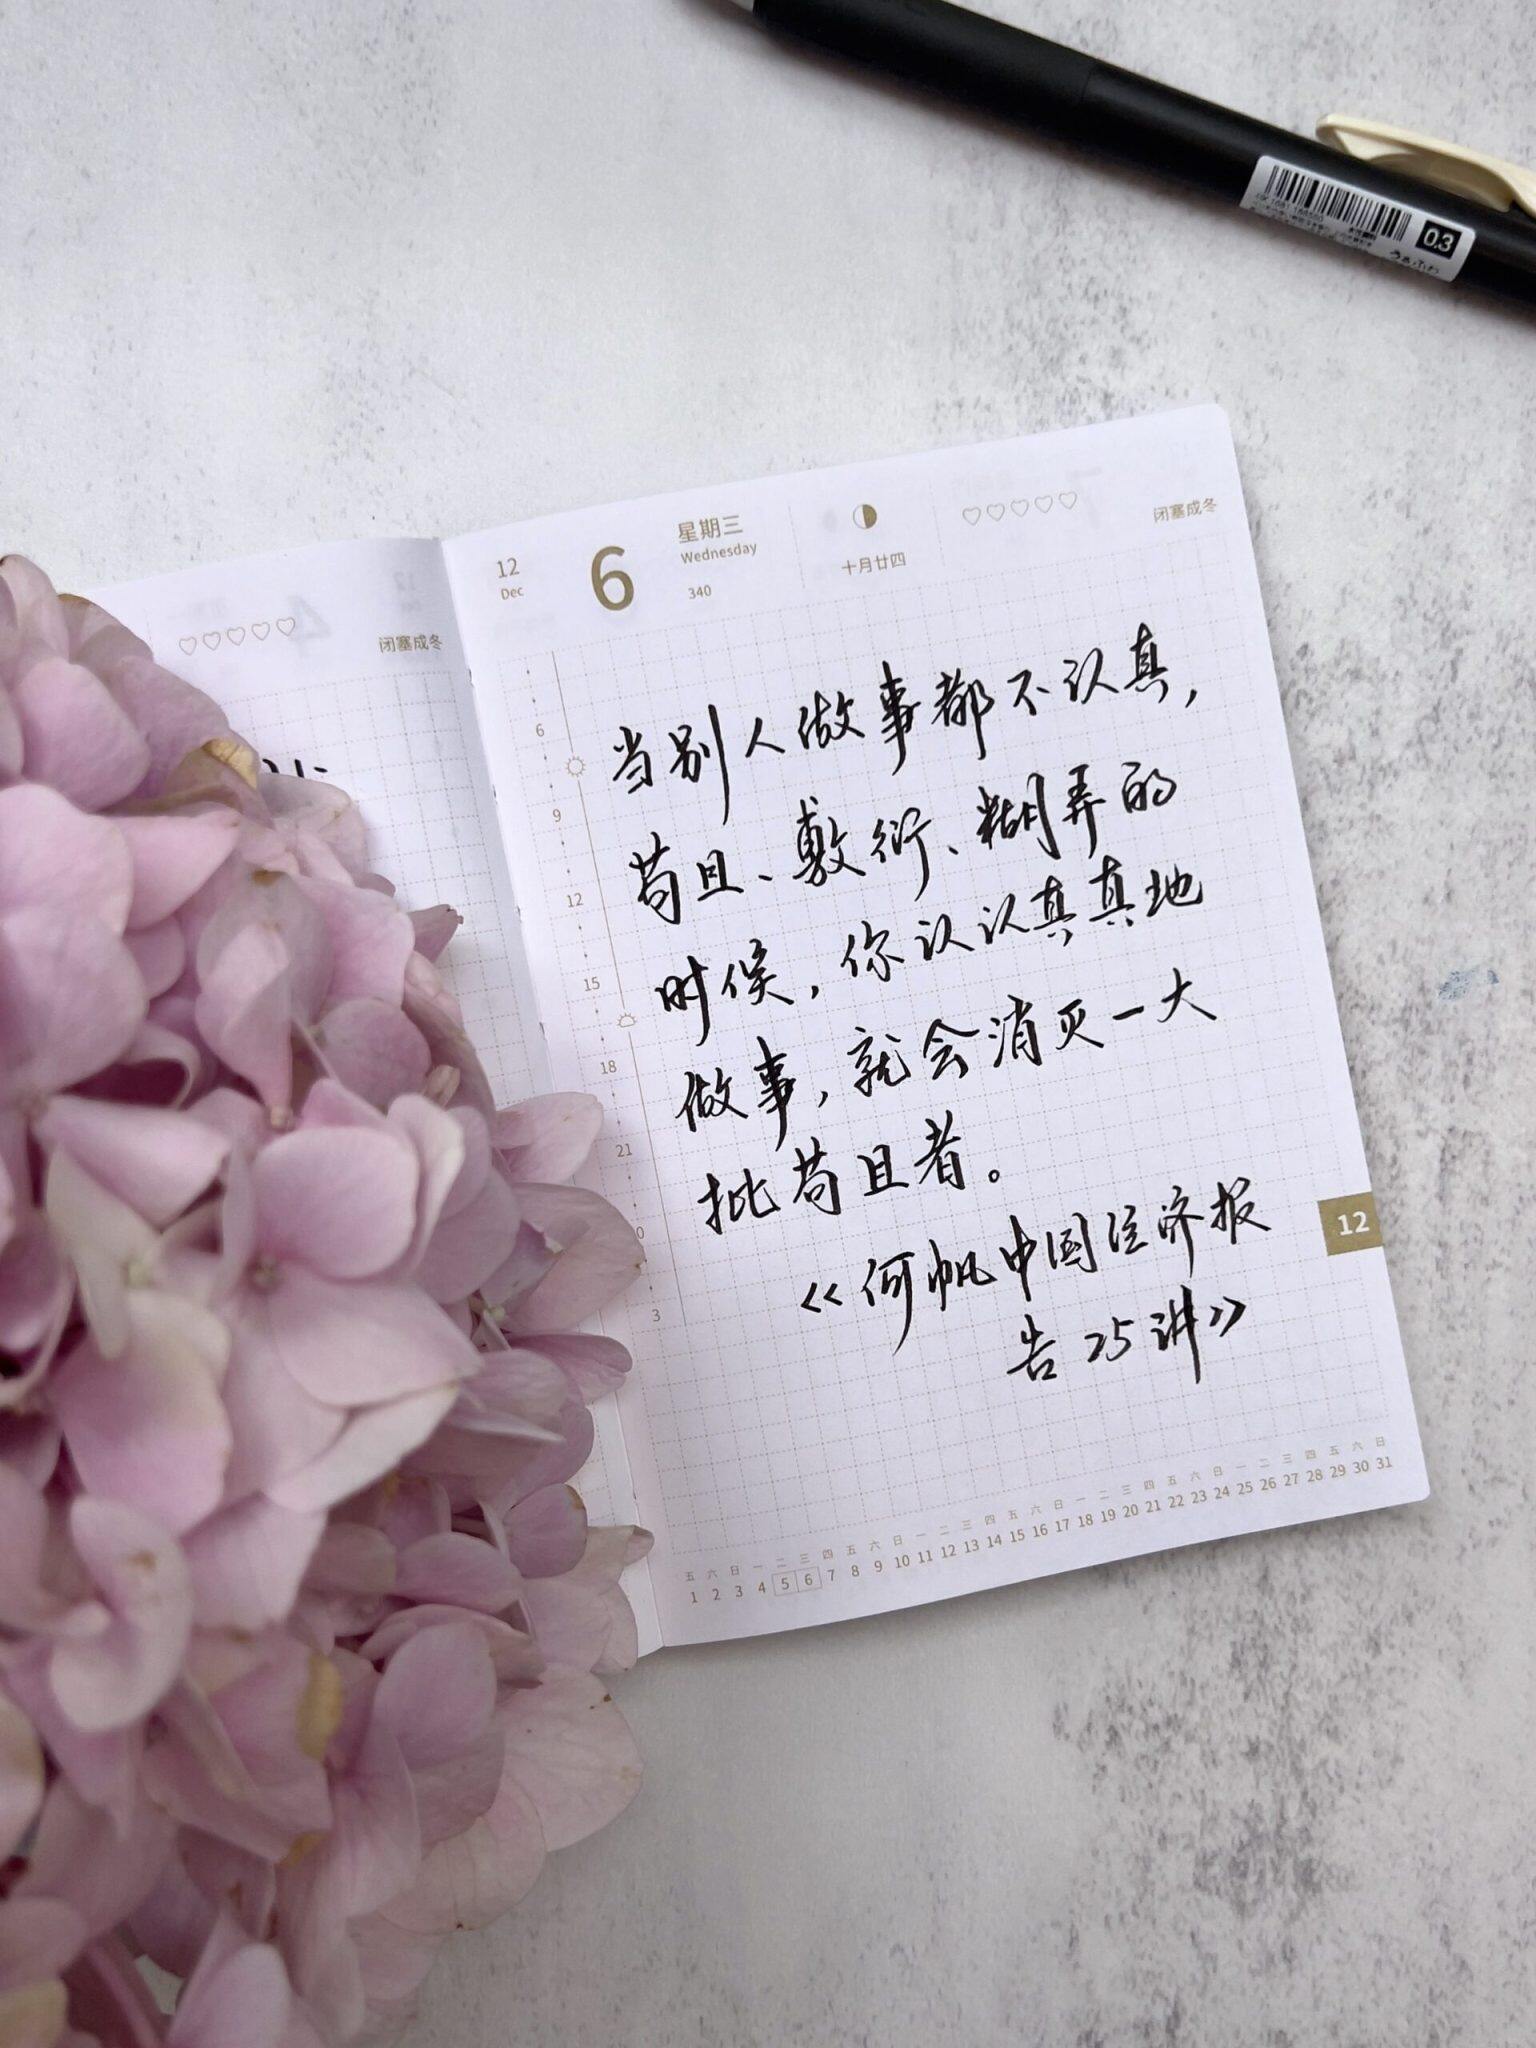 0.3
12
Dec
6
星期三
Wednesday
340
十月廿四
闭塞成冬
闭塞成冬
当别人做事都不认真，
苟且、敷衍、糊弄的
时候，你认认真真地
做事，就会消灭一大
批苟且者。
《何帆中国经济报
告25讲》
6
9
12
15
18
21
0
3
12
五 六 日 一 二 三 四 五 六 日 一 二 三 四 五 六 日 一 二 三 四 五 六 日 一 二 三 四 五 六 日
1 2 3 4 5 6 7 8 9 10 11 12 13 14 15 16 17 18 19 20 21 22 23 24 25 26 27 28 29 30 31